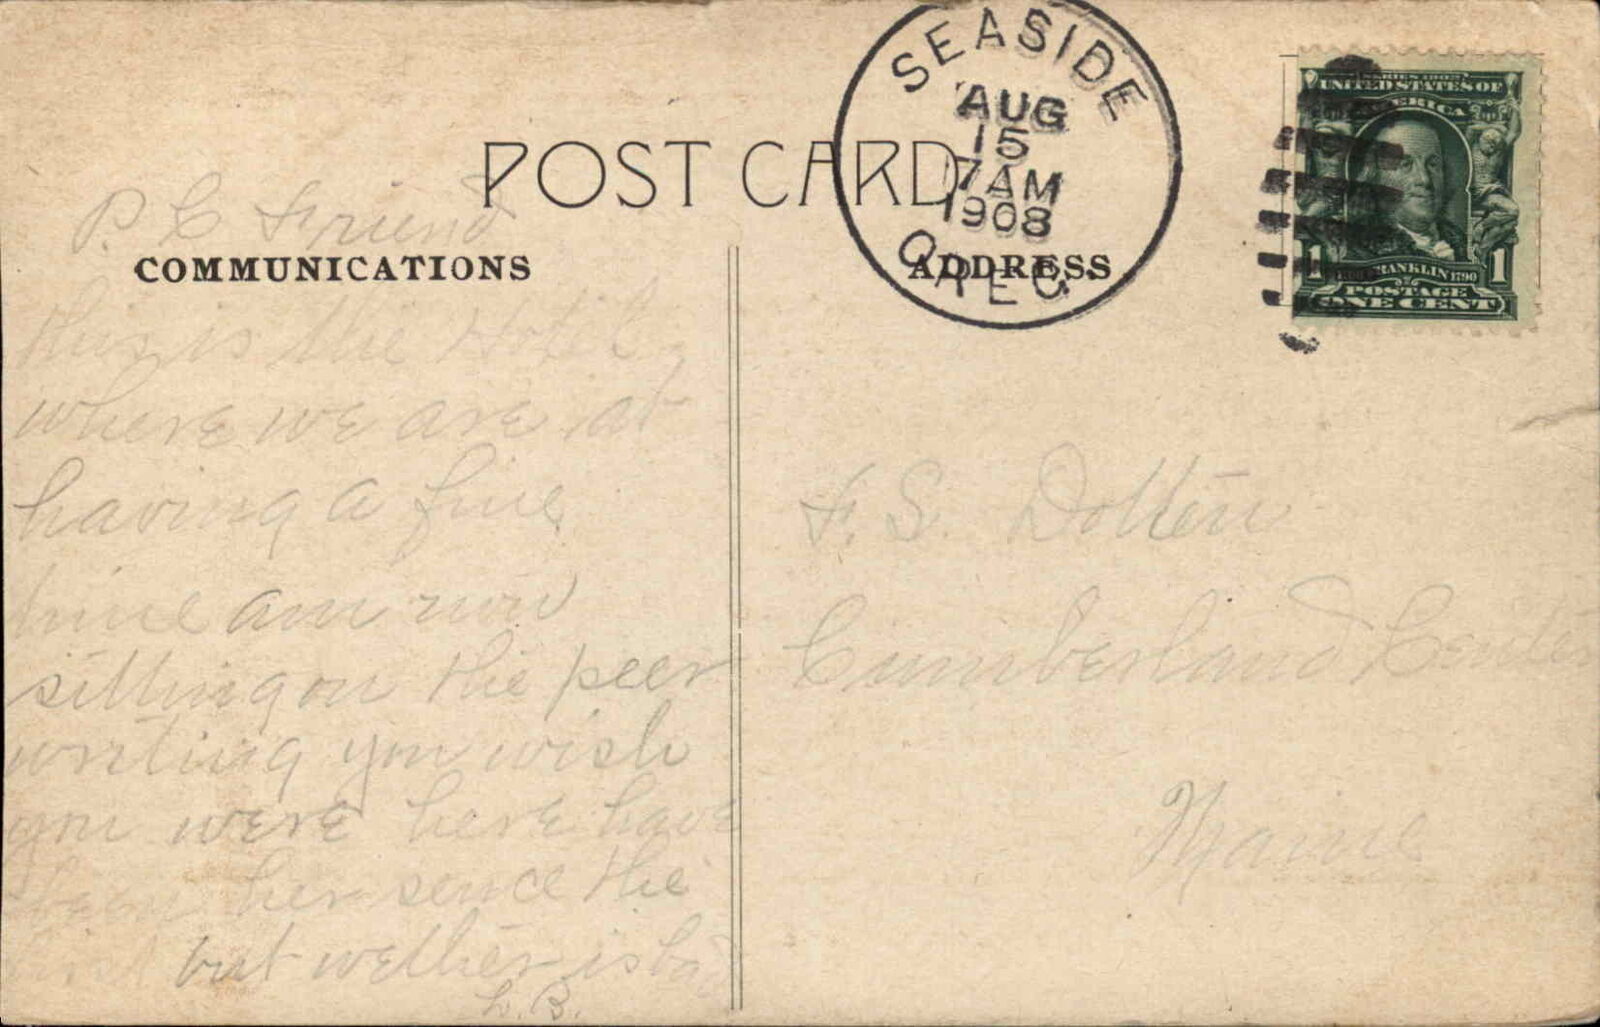 POST CARD
SEASIDE
AUG
15
7 AM
1908
OREG.
SERIES 1902
UNITED STATES OF
AMERICA
FRANKLIN 1790
1 1
POSTAGE
ONE CENT
P. C. Friend
COMMUNICATIONS
this is the Hotel
where we are at
having a fine
time am now
sitting on the peer
writing you wish
you were here have
been her sence the
but wether is bad
L. B.
ADDRESS
F. S. Dolten
Cumberland Center
Maine